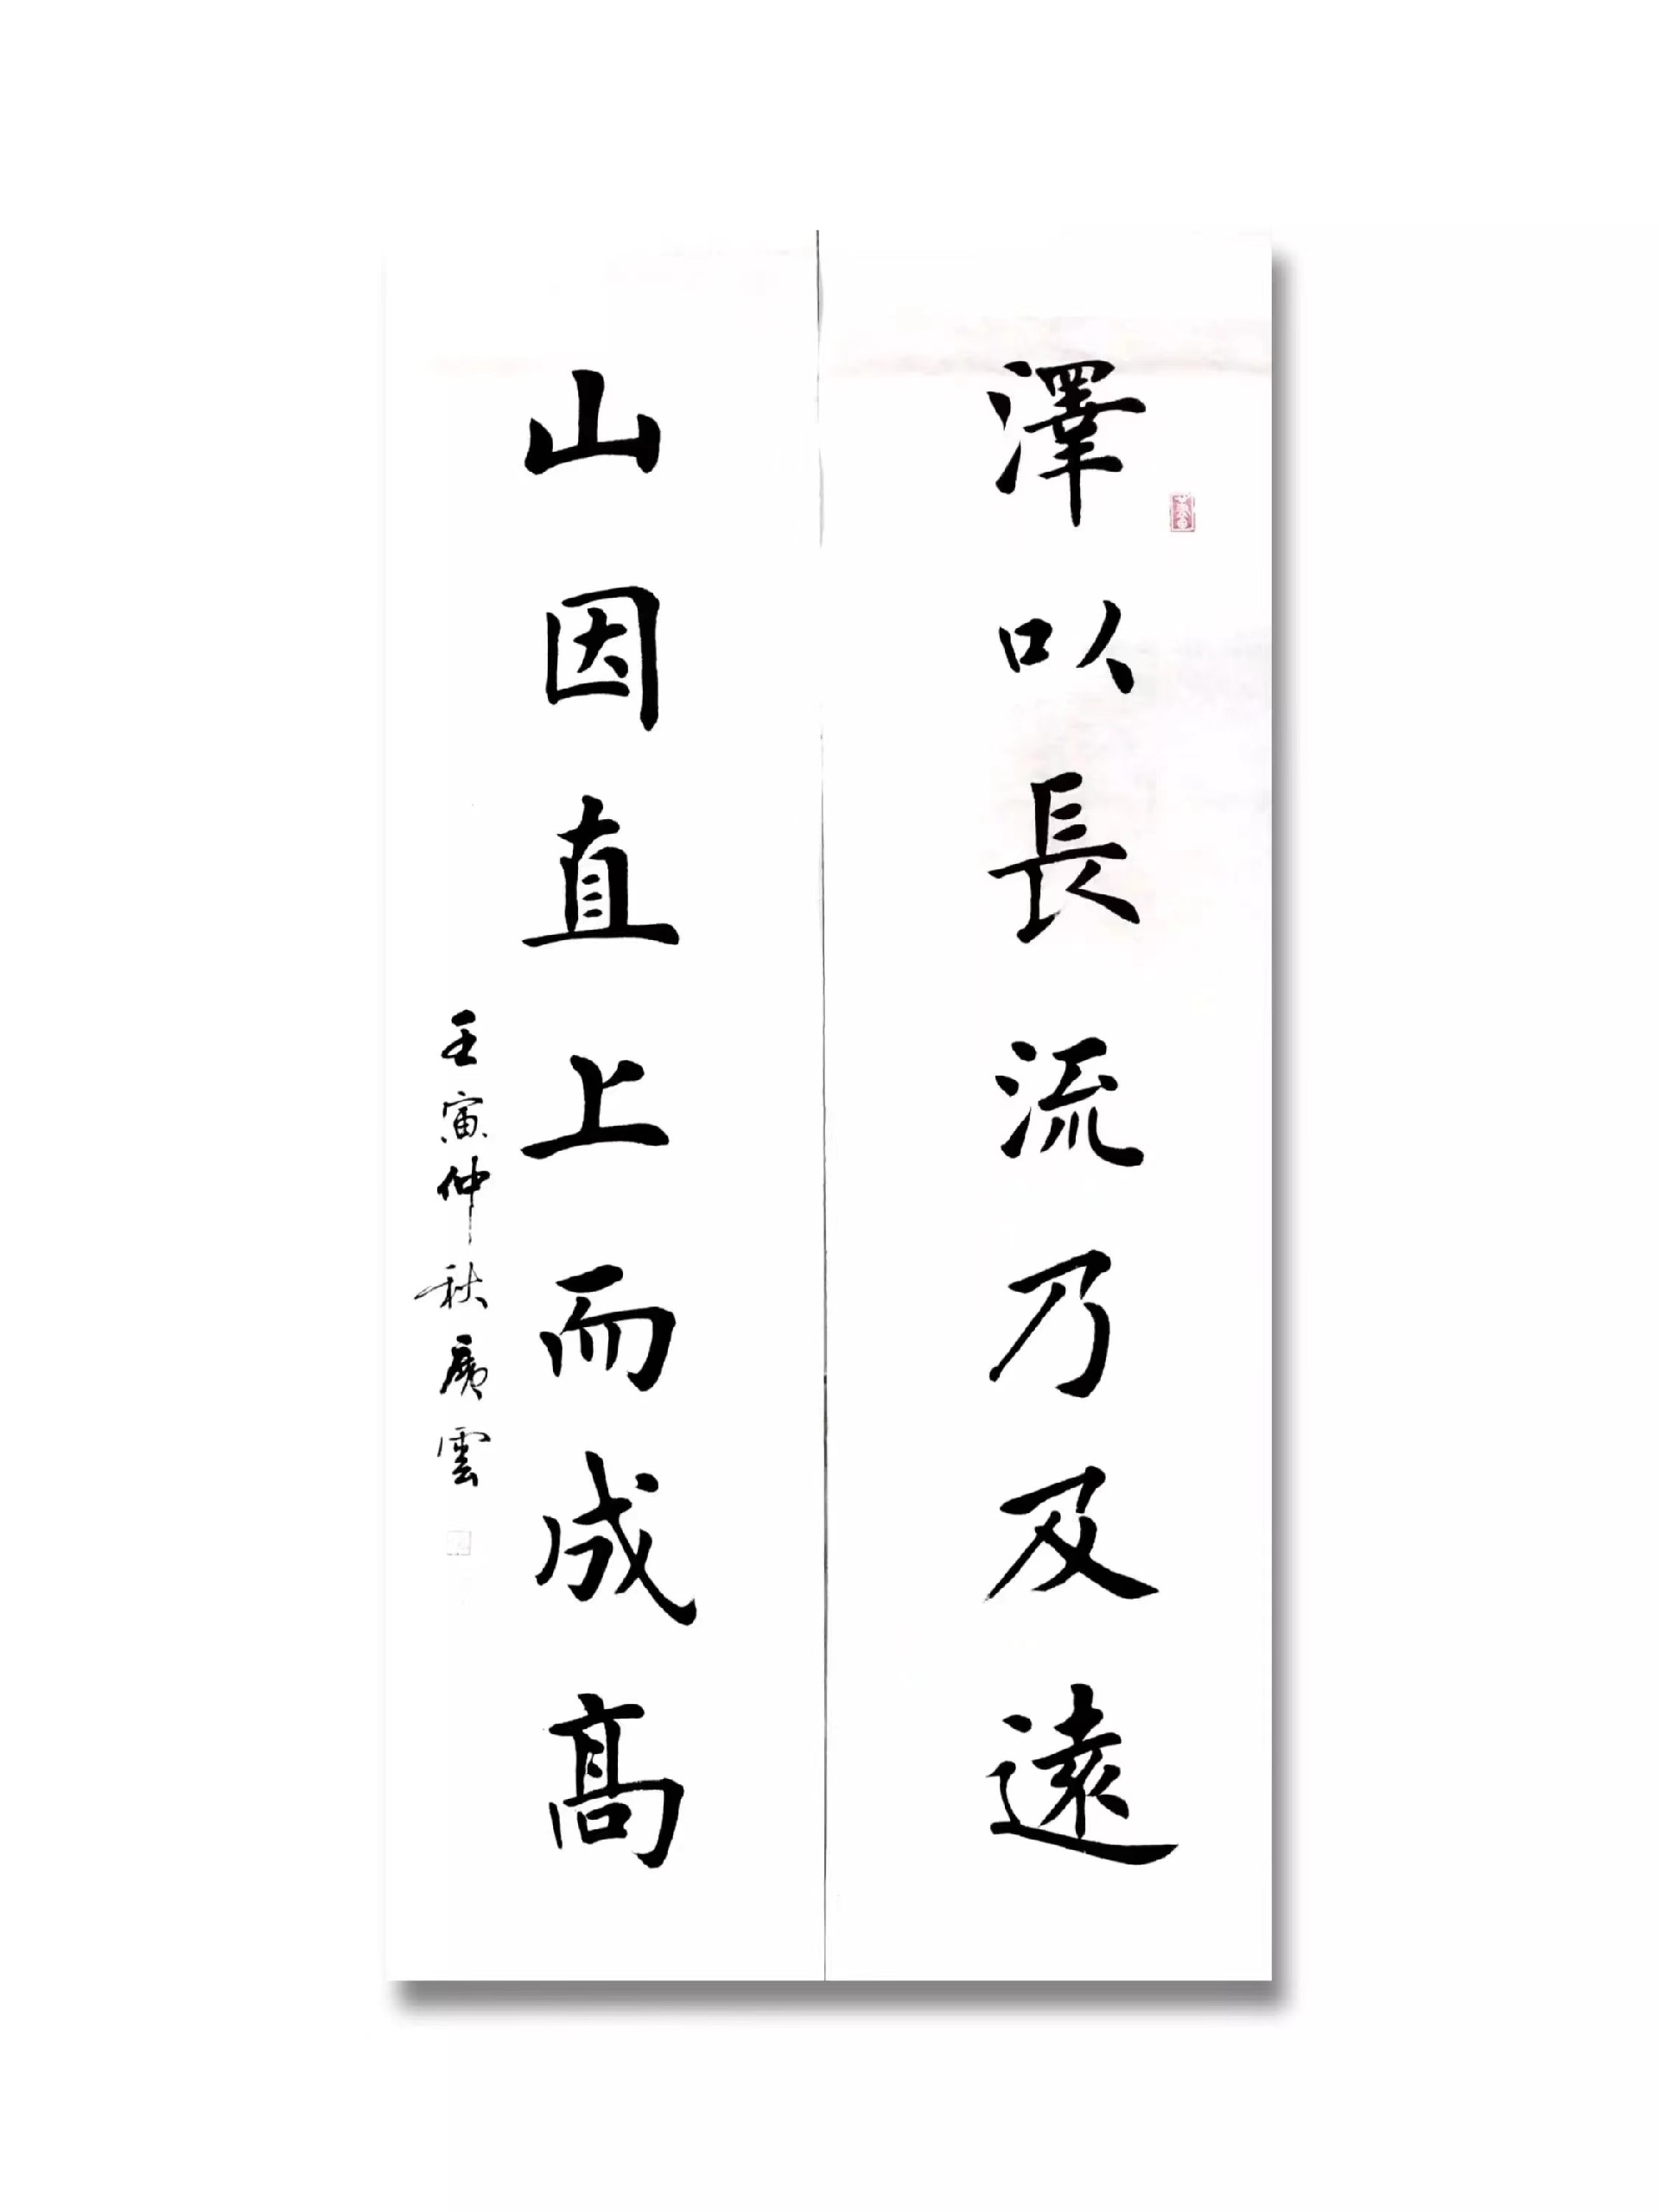 澤以長流乃及遠
山因直上而成高
壬寅仲秋廣雲